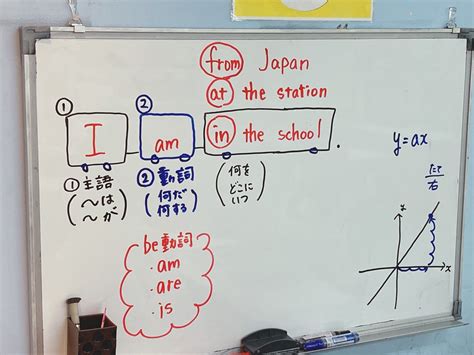 from Japan
at the station
① ②
I am in the school.
① 主語 ② 動詞
(〜は 〜が) (何だ 何する) (何を どこに いつ)
be動詞
・am
・are
・is
y=ax
たて
右
x
x